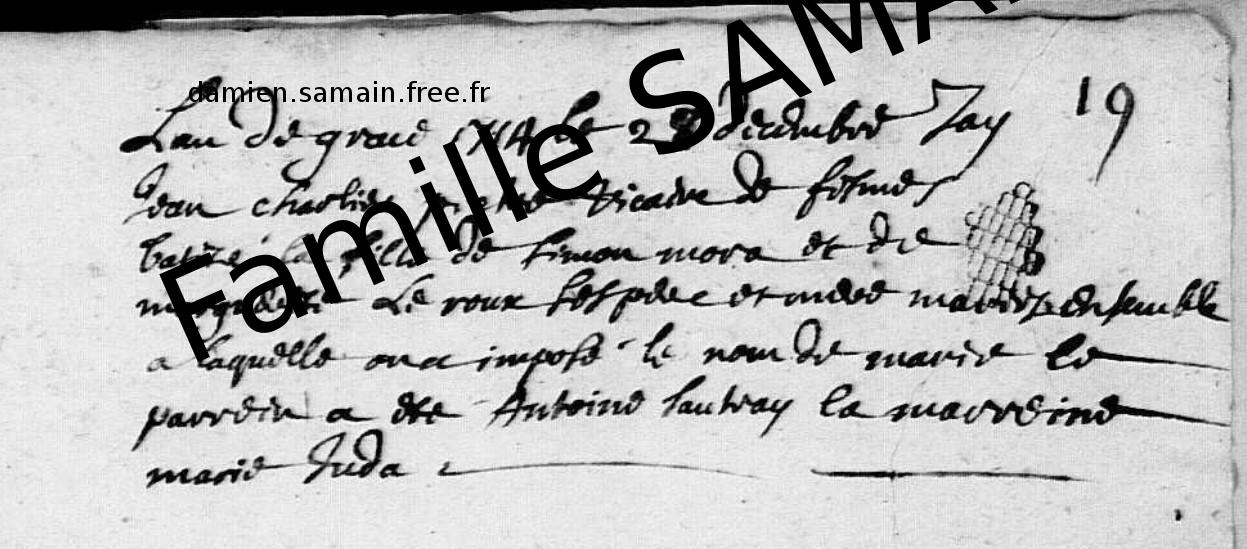 damien.samain.free.fr
Famille SAMAI
19
Lan de grace le 2 decembre Jay
Jean charlie vicaire de fismes
batizé la fille de Simon mora et de
Le roux pere et mere mariez ensemble
a laquelle on a imposé le nom de marie le
parrein a ete Antoine Lautray la marreine
marie Juda